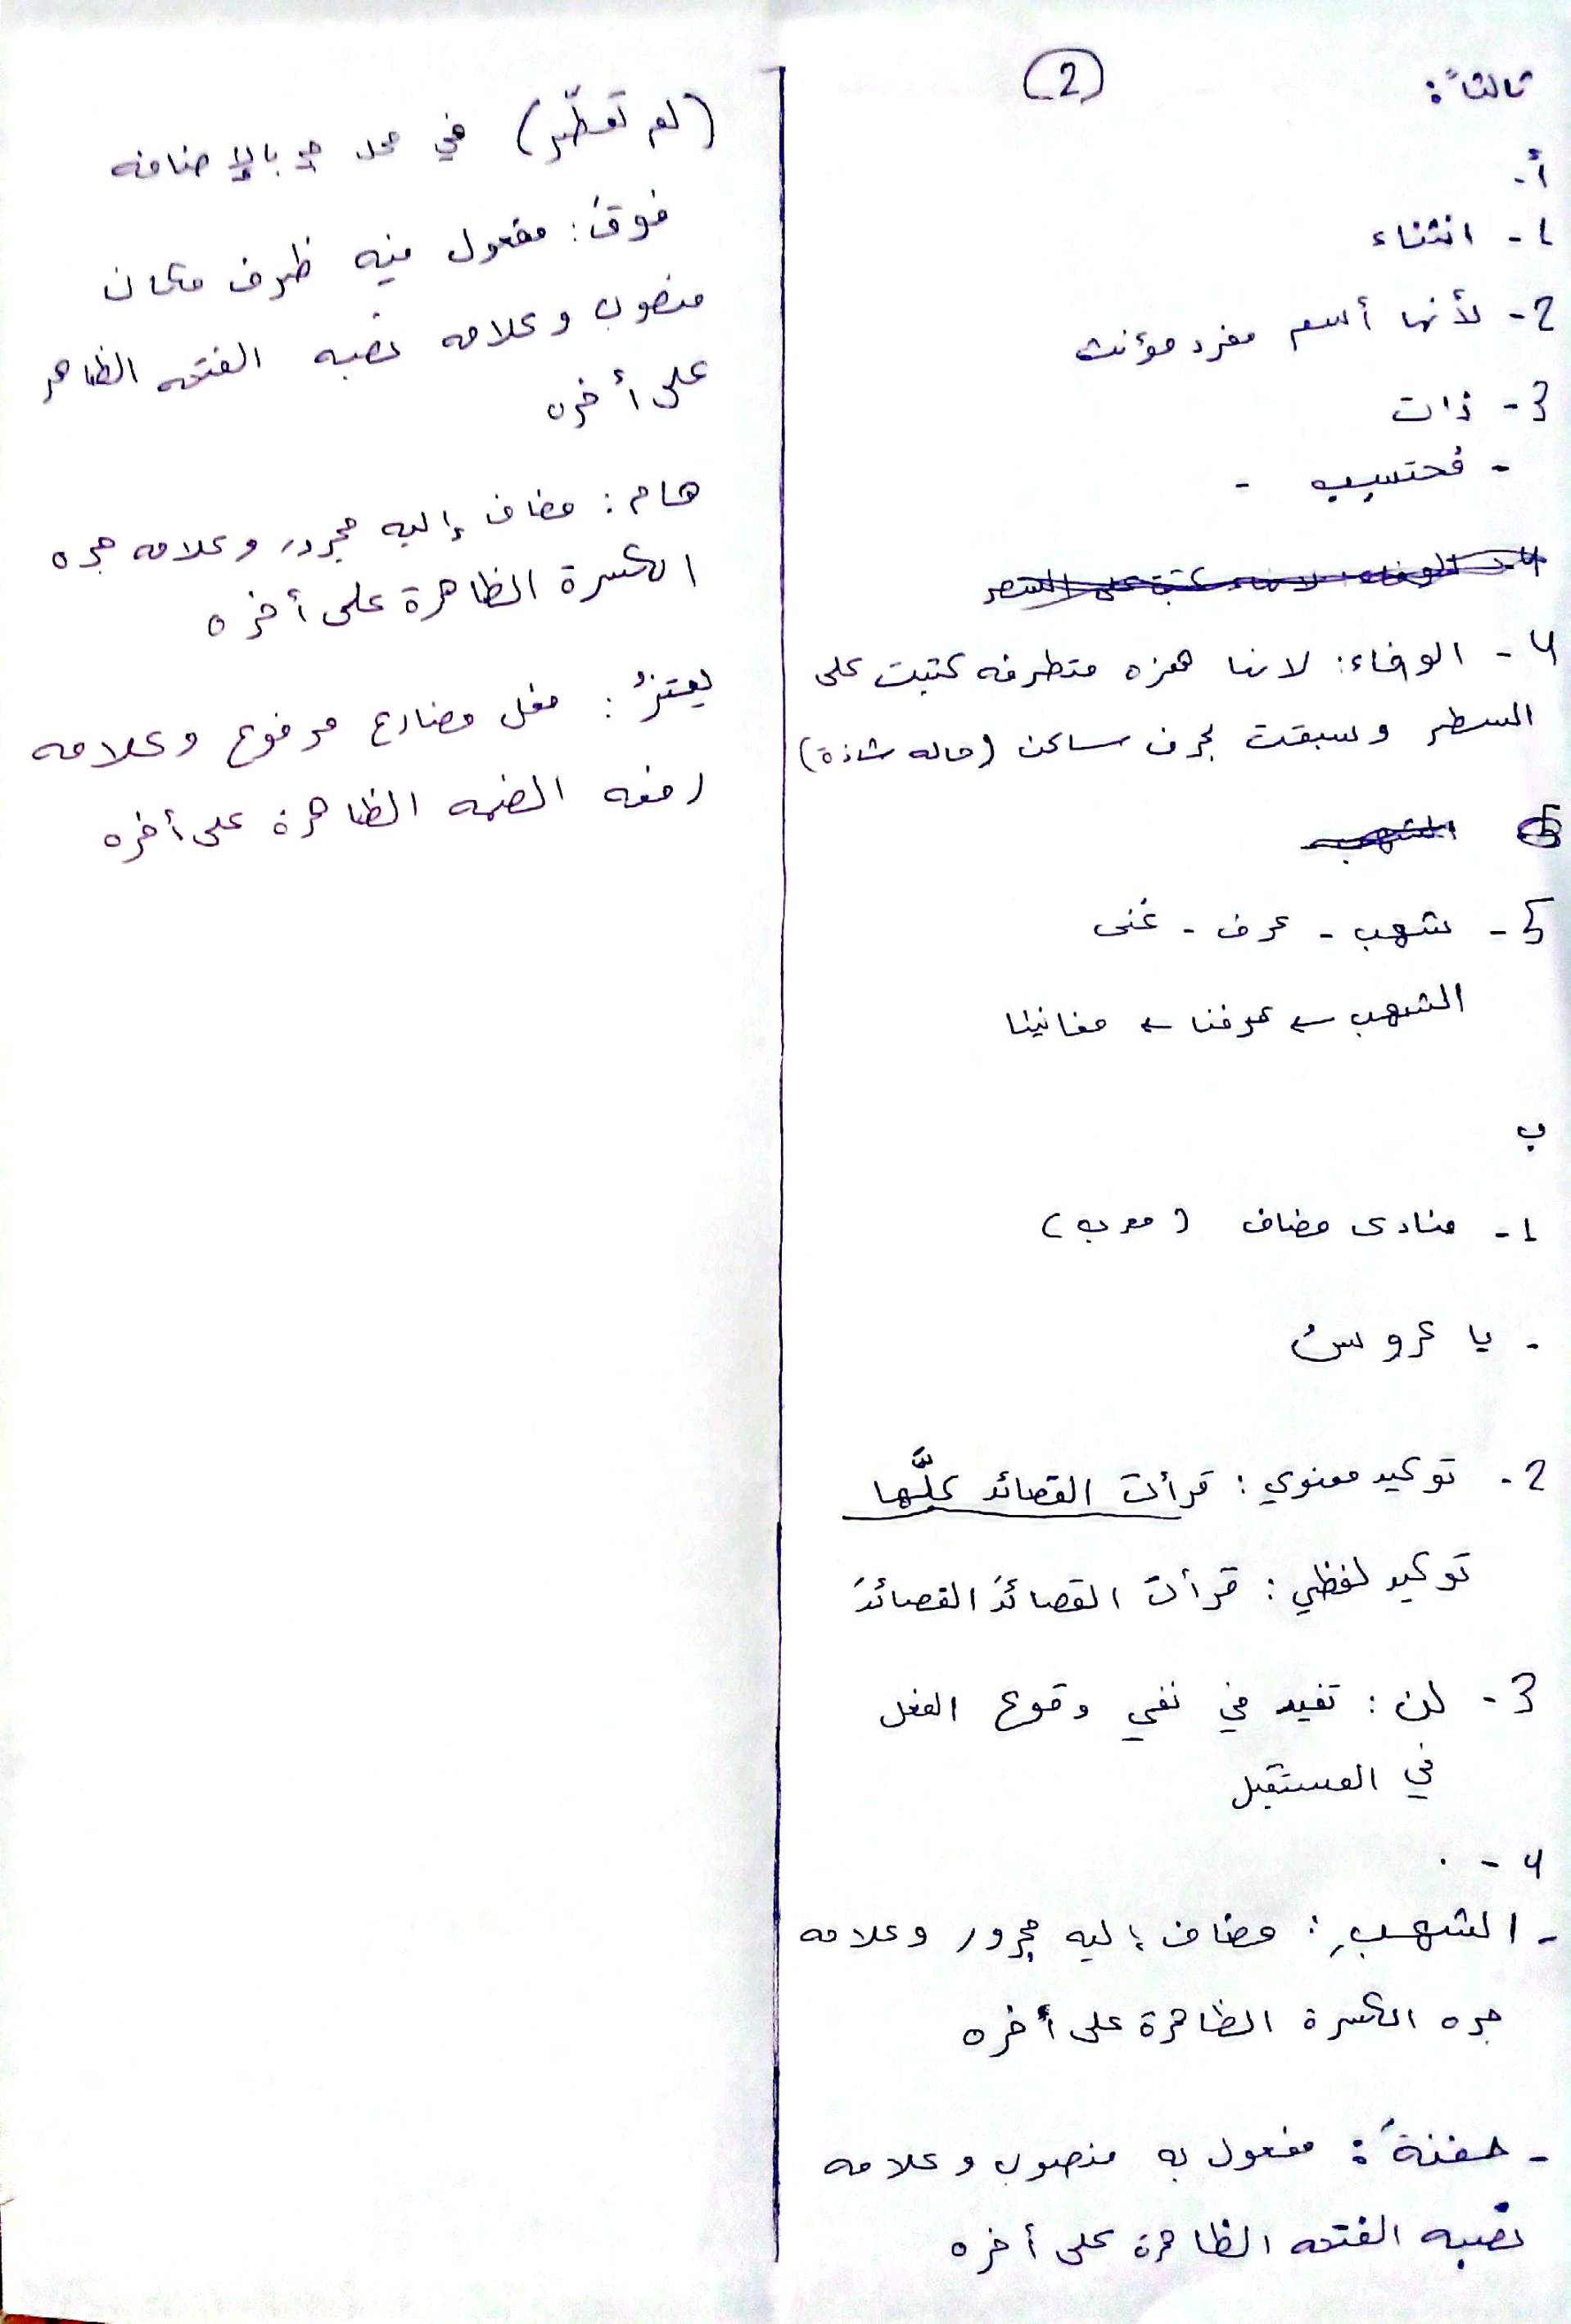 (2)
ثالثاً:
أ-
1- انثناء
2- لأنها أسم مفرد مؤنث
3- ذات
- مُحتسب -
4- الوفاء: لانها همزه متطرفه كتبت على
السطر وسبقت بحرف ساكن (حاله شاذة)
5- شهب - عرف - غنى
الشهب ← عرفنا ← مغانينا
ب
1- منادى مضاف (معرب)
- يا عروسُ
2- توكيد معنوي: قرأت القصائد كلَّها
توكيد لفظي: قرأت القصائدَ القصائدَ
3- لن: تفيد في نفي وقوع الفعل
في المستقبل
4- .
- الشهبِ: مضاف إليه مجرور وعلامه
جره الكسرة الظاهرة على أخره
- حفنةً: مفعول به منصوب وعلامه
نصبه الفتحه الظاهرة على أخره
(لم تعطّر) في محل جر بالإضافه
فوقَ: مفعول فيه ظرف مكان
منصوب وعلامه نصبه الفتحه الظاهر
على أخره
هام: مضاف إليه مجرور وعلامه جره
الكسرة الظاهرة على أخره
يعتزُ: فعل مضارع مرفوع وعلامه
رفعه الضمه الظاهرة على أخره